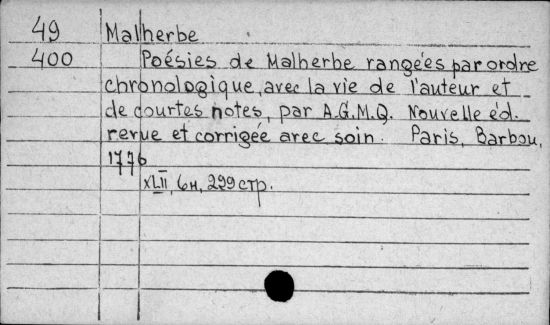 49 Malherbe
400 Poésies de Malherbe rangées par ordre
chronologique, avec la vie de l'auteur et
de courtes notes, par A.G.M.Q. Nouvelle éd.
revue et corrigée avec soin. Paris, Barbou,
1776
XLII, 6н, 299 стр.